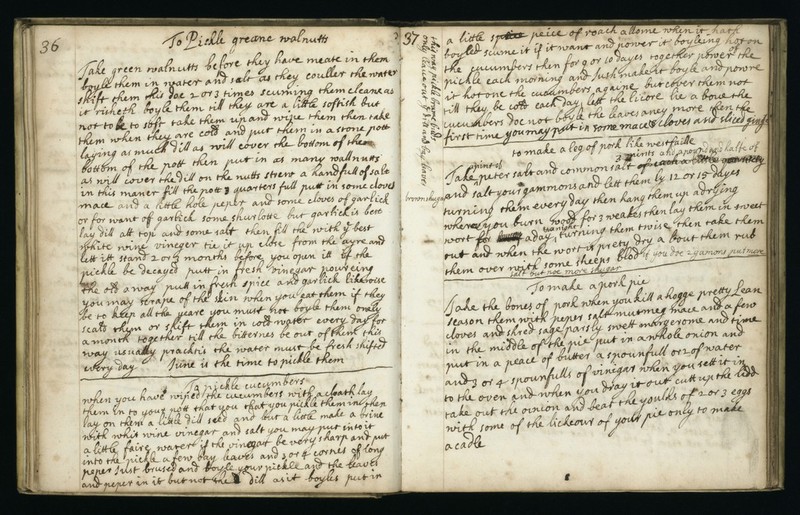 36
To Pickle greane walnutts
Take green walnutts before they have meate in them
boyle them in water and salt as they couller the water
shift them this doe 2 or 3 times scuming them cleane as
it riseth boyle them till they are a little softish but
not to be to soft take them up and wipe them then take
them when they are cold and put them in a stone pott
laying as much dill as will cover the bottom of the
bottom of the pott then put in as many wallnutts
as will cover the dill on the nutts strew a handfull of salt
in this maner fill the pott 3 quarters full putt in some cloves
mace and a little hole peper and some cloves of garlick
or for want of garlick some shurlotts but garlick is best
lay dill att top and some salt then fill the with ye best
white wine vineger tie it up close from the ayre and
lett itt stand 2 or 3 months before you open itt if the
pickle be decayed putt in fresh vinegar poureing
the old away putt in fresh spice and garlick likewise
you may scrape of the skin when you eat them if they
be to keep all the yeare you must not boyle them onely
scald them or shift them in cold water every day for
a month together till the bitternes be out of them this
way usually practis the water must be fresh shifted
every day June is the time to pickle them
To pickle cucumbers
when you have wiped the cucumbers with a cloath lay
them in to your pott that you that you pickle them in then
lay on them a little dill seed and but a little make a brine
with whit wine vinegar and salt you may put into it
a little faire water if the vinegar be very sharp and put
into the pickle a few bay leaves and 3 or 4 cornes of long
peper Just brused and boyle your pickle and the leaves
and peper in it but not the dill as it boyles put in
37
a little peice of roach allome when it hath
boyled scume it if it want and power it boyleing hot on
the cucumbers then for 9 or 10 dayes together power the
pickle each morning and Just make it boyle and powre
it hot one the cucumbers againe but cover them not
till they be cold each day lett the licore lie a bove the
cucumbers doe not boyle the leaves any more then the
first time you may put in some mace & cloves and sliced ginger
to make a leg of pork like westfallie
Take peter salt and common salt
pint of
and salt your gammons and lett them ly 12 or 15 dayes
turning them every day then hang them up a drying
where you burn wood for 3 weakes then lay them in sweet
wort a day turning them twise then take them
out and when the wort is prety dry a bout them rub
them over with some sheeps blod if you doe 2 gamons put more
salt but not more shugar
brown shugar
To make a pork pie
Take the bones of pork when you kill a hogge pretty Lean
season them with peper salt nutmeg mace and a few
cloves and shred sage parsly swet margerome and time
in the middle of the pie put in a whole onion and
put in a peace of butter a spounfull or 2 of water
and 3 or 4 spounfulls of vinegar when you sett it in
to the oven and when you draw it out cutt up the lidd
take out the onion and beat the youlks of 2 or 3 eggs
with some of the lickeour of your pie only to make
a cadle